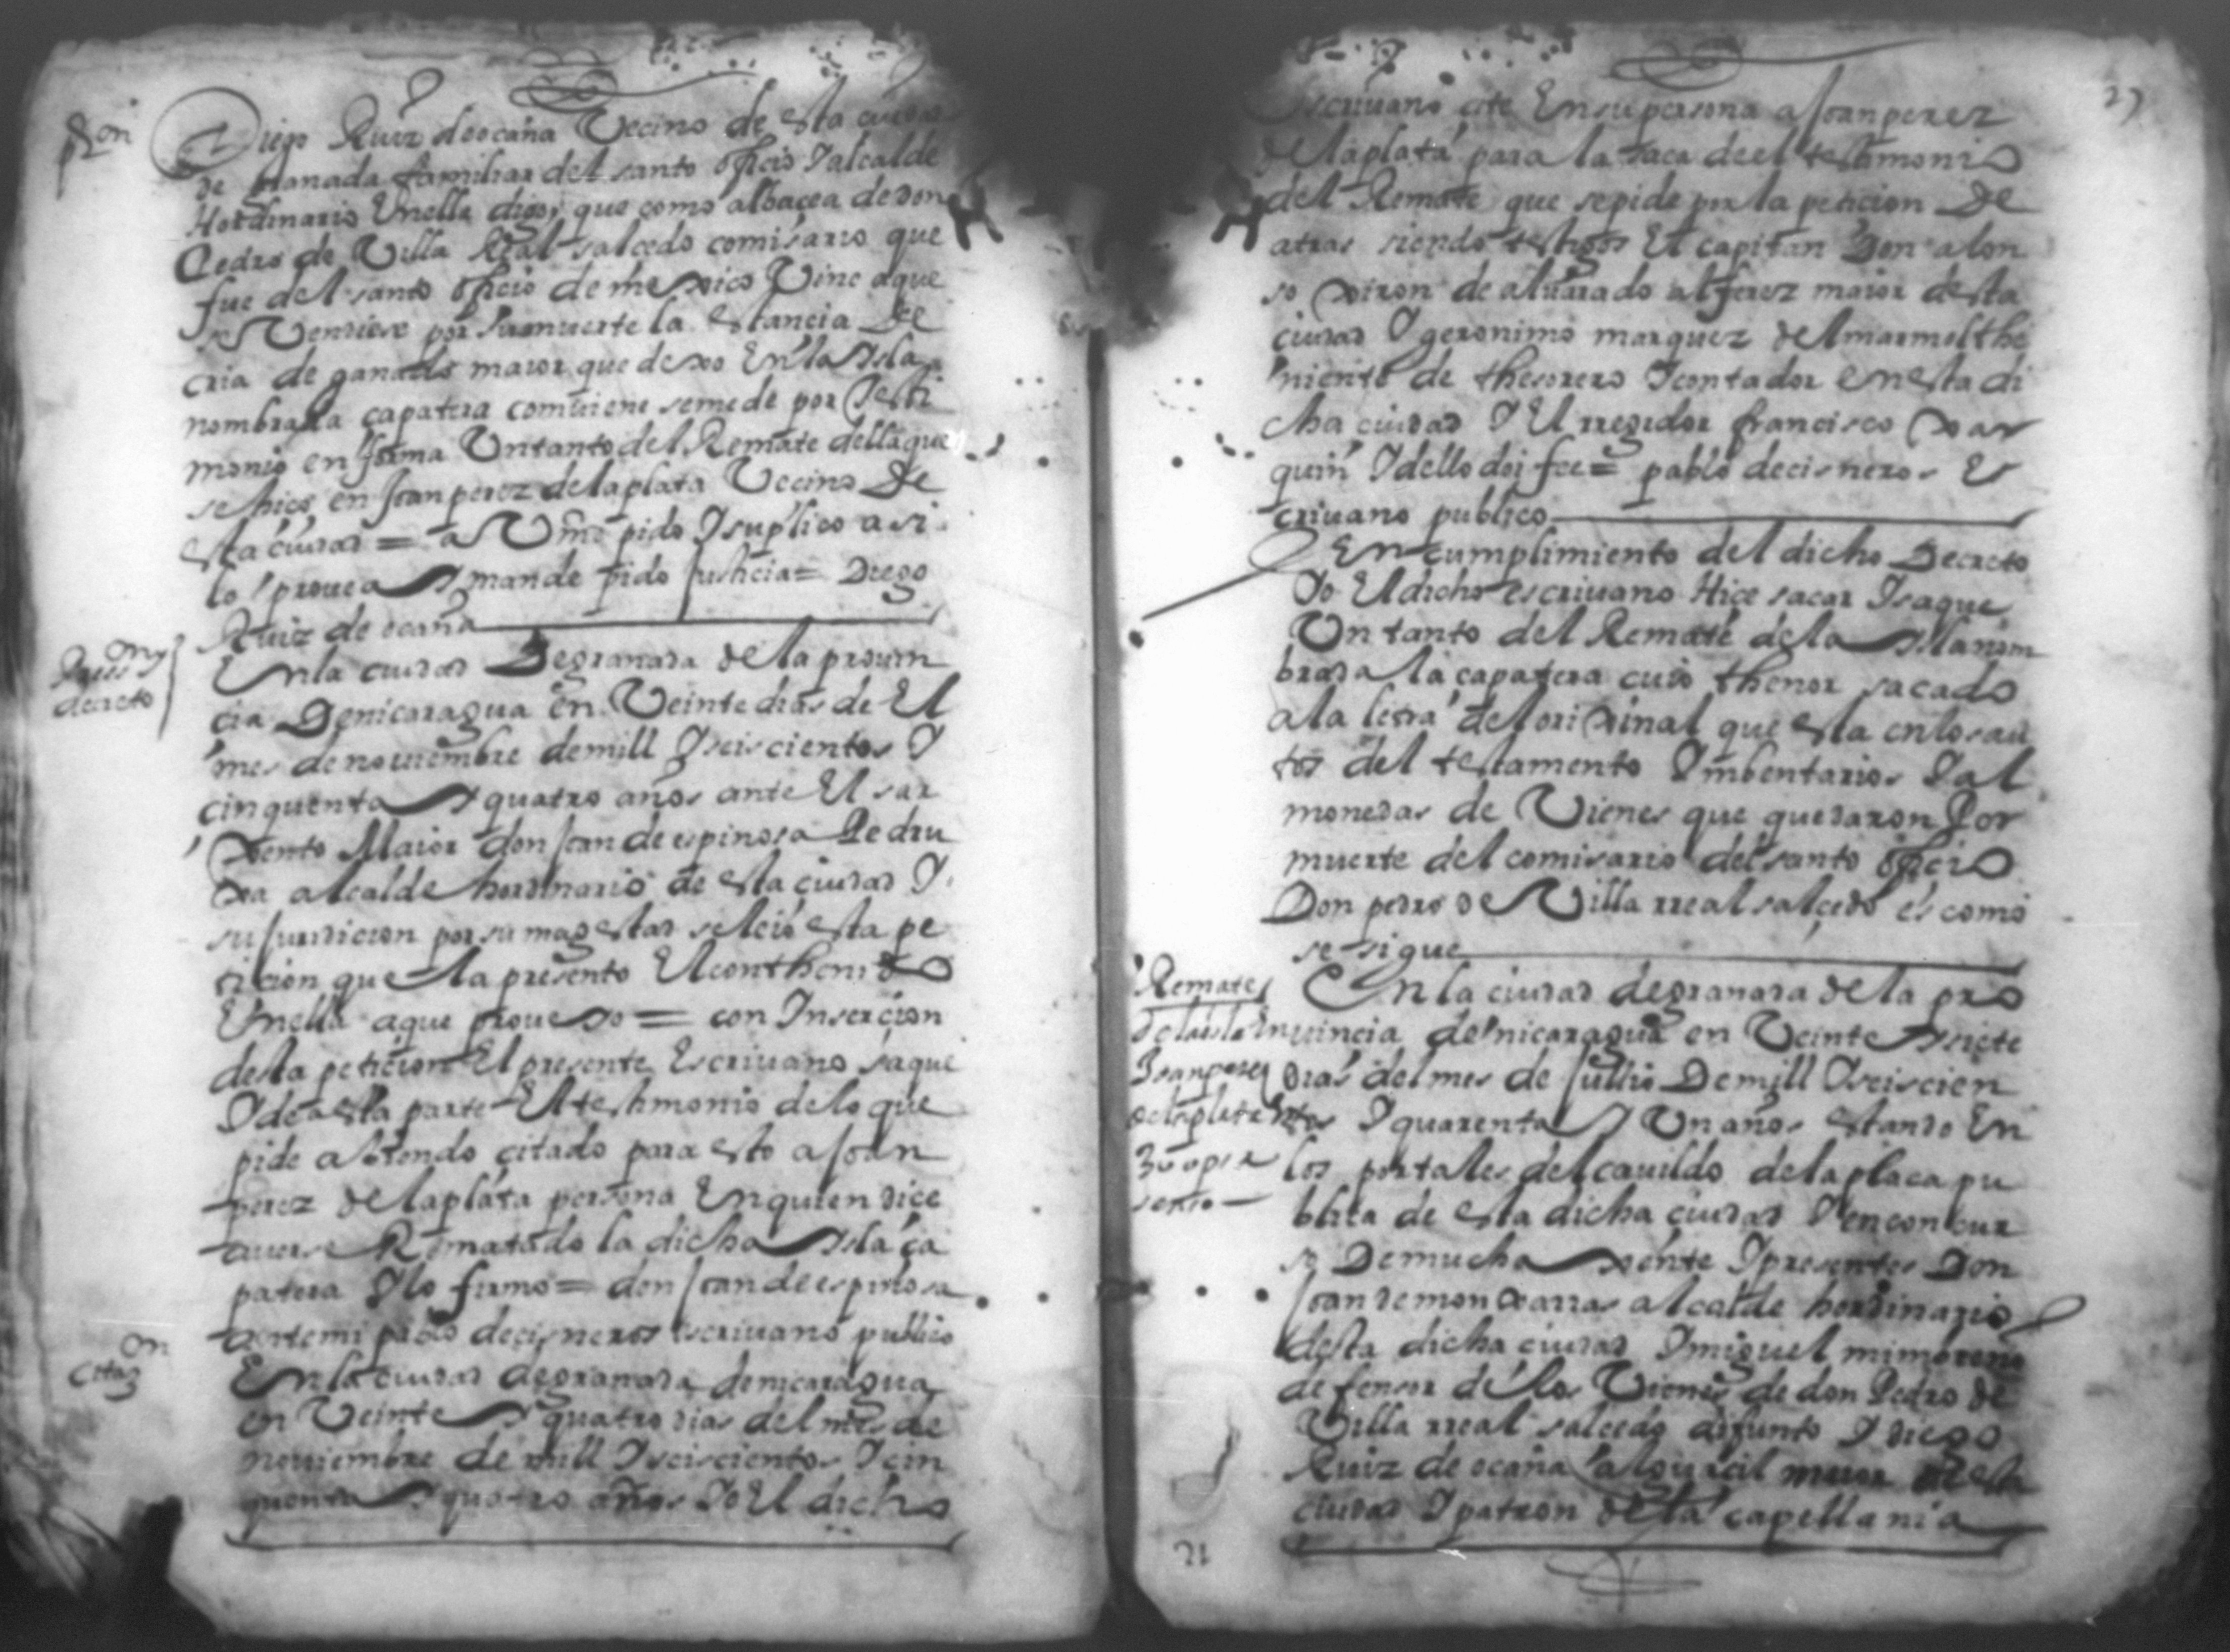 pon
Diego Ruiz de ocaña Vecino de esta ciudad
de granada familiar del santo oficio Y alcalde
Hordinario Enella digo, que como albaçea de don
Pedro de Villa Real salcedo comisario que
fue del santo oficio de mexico Vine a que
se Vendiese por su muerte la estancia De
cria de ganado maior que dexo En la Ysla
nombrada çapatera comuiene se me de por Testi
monio en forma Un tanto del Remate della que
se hiço en Joan perez de la plata Vecino De
esta ciudad = a Vmd pido Y suplico a si
lo prouea Y mande pido Justicia = Diego
Ruiz de ocaña
decreto
En la ciudad De granada de la prouin
cia De nicaragua en Veinte dias de El
mes de nouiembre de mill Y seiscientos Y
cinquenta Y quatro años ante El sar
xento Maior don Joan de espinosa Pedru
xa alcalde hordinario de esta ciudad Y
su Juridicion por su magestad se leió esta pe
ticion que la presento El conthenido
Enella a que proueyo = con Insercion
desta peticion El presente Escriuano saque
Y de a esta parte El testimonio de lo que
pide abiendo çitado para esto a Joan
perez de la plata persona En quien dice
auerse Rematado la dicha Ysla ça
patera Y lo firmo = don Joan de espinosa
ante mi pablo de çisneros escriuano publico
Citazon
En la ciudad de granada de nicaragua
en Veinte Y quatro dias del mes de
nouiembre de mill Y seiscientos Y cin
quenta Y quatro años Yo El dicho
escriuano cite En su persona a Joan perez
de la plata para la saca de el testimonio
del Remate que se pide por la peticion De
atras siendo testigos El capitan Don alon
so xiron de aluarado alferez maior desta
ciudad Y geronimo marquez del marmol the
niente de thesorero Y contador en esta di
cha ciudad Y El rregidor francisco xar
quin Y dello doi fee = pablo de cisneros Es
criuano publico
En cumplimiento del dicho Decreto
Yo El dicho escriuano Hiçe sacar Y saque
Un tanto del Remate de la Ysla nom
brada la çapatera cuio thenor sacado
a la letra del orixinal que esta en los au
tos del testamento Ymbentarios Y al
monedas de Vienes que quedaron Por
muerte del comisario del santo oficio
Don pedro de Villa rreal salçedo es como
se sigue
Remate
de la isla en
Joan perez
de la plata
En la ciudad de granada de la pro
uincia de nicaragua en Veinte Y siete
dias del mes de Jullio De mill Y seiscien
tos Y quarenta Y Un años estando En
los portales del cauildo de la plaça pu
blica de esta dicha ciudad Y en concur
so De mucha xente Y presentes Don
Joan de monxarras alcalde hordinario
desta dicha ciudad Y miguel mi moreno
defensor de los Vienes de don Pedro de
Villa rreal salcedo difunto Y diego
Ruiz de ocaña alguacil maior de esta
ciudad Y patron de la capellania
21